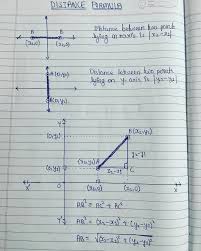 DISTANCE FORMULA
Distance between two points
lying on x axis is |x₂-x₁|
A B
(x₁,0) (x₂,0)
A(0,y₂)
Distance between two points
lying on y axis is |y₂-y₁|
B(0,y₁)
Y
(0,y₂) B(x₂,y₂)
y₂-y₁
(x₁,y₁)
(0,y₁) A x₂-x₁ C
X' X
(x₁,0) (x₂,0)
Y'
AB² = AC² + BC²
AB² = (x₂-x₁)² + (y₂-y₁)²
AB = √(x₂-x₁)² + (y₂-y₁)²